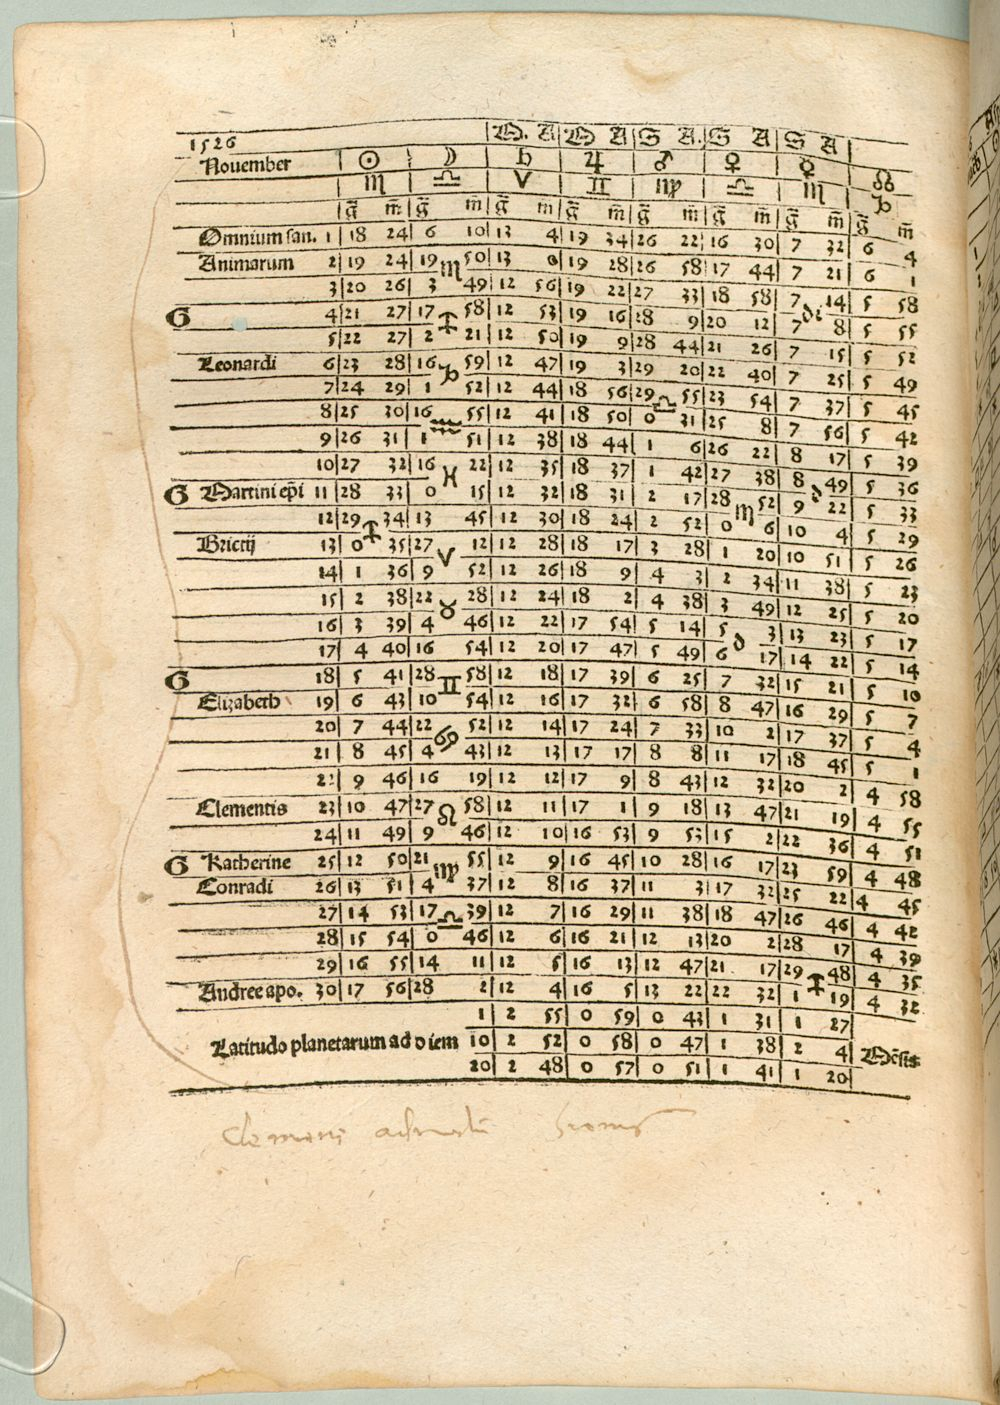 1526 M. A M A S A. S A S A
Nouember ☉ ☽ ♄ ♃ ♂ ♀ ☿ ☊
♏ ♎ ♈ ♊ ♍ ♎ ♏ ♑
g̃ m̃ g̃ m̃ g̃ m̃ g̃ m̃ g̃ m̃ g̃ m̃ g̃ m̃ g̃ m̃
Omnium san. 1 18 24 6 10 13 4 19 34 26 22 16 30 7 32 6 4
Animarum 2 19 24 19 ♏ 50 13 0 19 28 26 58 17 44 7 21 6 1
3 20 26 3 49 12 56 19 22 27 33 18 58 7 di 14 5 58
G 4 21 27 17 ♐ 58 12 53 19 16 28 9 20 12 7 8 5 55
5 22 27 2 21 12 50 19 9 28 44 21 26 7 15 5 52
Leonardi 6 23 28 16 ♑ 59 12 47 19 3 29 20 22 40 7 25 5 49
7 24 29 1 52 12 44 18 56 29 ♎ 55 23 54 7 37 5 45
8 25 30 16 ♒ 55 12 41 18 50 0 31 25 8 7 56 5 42
9 26 31 1 51 12 38 18 44 1 6 26 22 8 17 5 39
10 27 32 16 ♓ 22 12 35 18 37 1 42 27 38 8 d 49 5 36
G Martini ep̃i 11 28 33 0 15 12 32 18 31 2 17 28 ♏ 52 9 22 5 33
12 29 ♐ 34 13 45 12 30 18 24 2 52 0 6 10 4 5 29
Brictij 13 0 35 27 ♈ 12 12 28 18 17 3 28 1 20 10 51 5 26
14 1 36 9 52 12 26 18 9 4 3 2 34 11 38 5 23
15 2 38 22 ♉ 28 12 24 18 2 4 38 3 49 12 25 5 20
16 3 39 4 46 12 22 17 54 5 14 5 d 3 13 23 5 17
17 4 40 16 54 12 20 17 47 5 49 6 17 14 22 5 14
G 18 5 41 28 ♊ 58 12 18 17 39 6 25 7 32 15 21 5 10
Elizabeth 19 6 43 10 54 12 16 17 32 6 58 8 47 16 29 5 7
20 7 44 22 ♋ 52 12 14 17 24 7 33 10 2 17 37 5 4
21 8 45 4 43 12 13 17 17 8 8 11 17 18 45 5 1
22 9 46 16 19 12 12 17 9 8 43 12 32 20 2 4 58
Clementis 23 10 47 27 ♌ 58 12 11 17 1 9 18 13 47 21 19 4 55
24 11 49 9 46 12 10 16 53 9 53 15 2 22 36 4 51
G Katherine 25 12 50 21 ♍ 55 12 9 16 45 10 28 16 17 23 59 4 48
Conradi 26 13 51 4 37 12 8 16 37 11 3 17 32 25 22 4 45
27 14 53 17 ♎ 39 12 7 16 29 11 38 18 47 26 46 4 42
28 15 54 0 46 12 6 16 21 12 13 20 2 28 17 4 39
29 16 55 14 11 12 5 16 13 12 47 21 17 29 ♐ 48 4 35
Andree apo. 30 17 56 28 2 12 4 16 5 13 22 22 32 1 19 4 32
1 2 55 0 59 0 43 1 31 1 27
Latitudo planetarum ad diem 10 2 52 0 58 0 47 1 38 2 4 Mẽsis
20 2 48 0 57 0 51 1 41 1 20